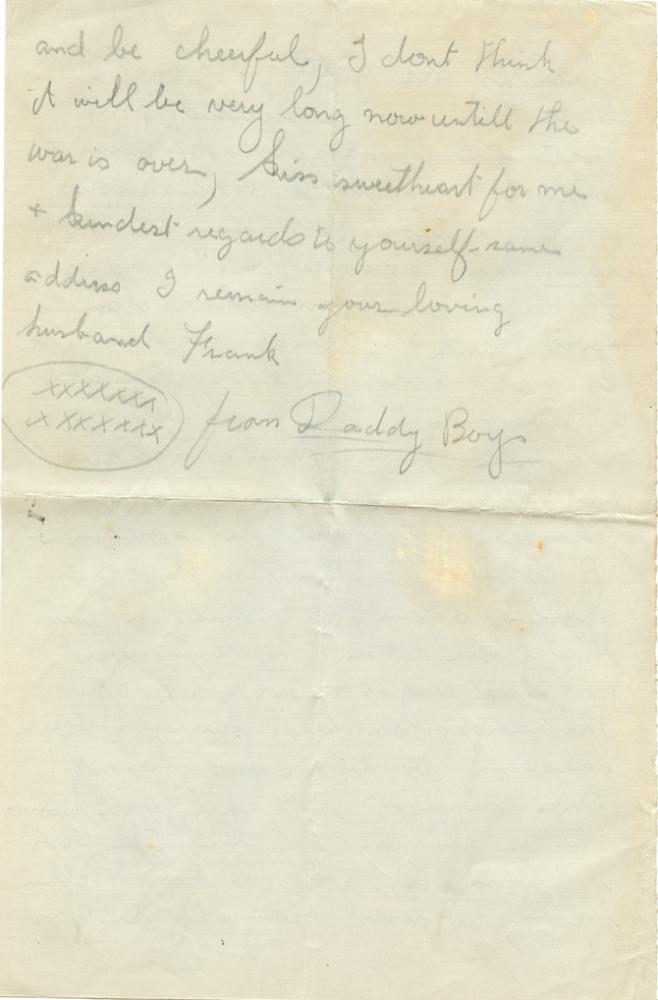 and be cheerful, I dont think
it will be very long now untill the
war is over, kiss sweetheart for me
+ kindest regards to yourself same
address I remain your loving
husband Frank
xxxxxxx
xxxxxxx
from Daddy Boy